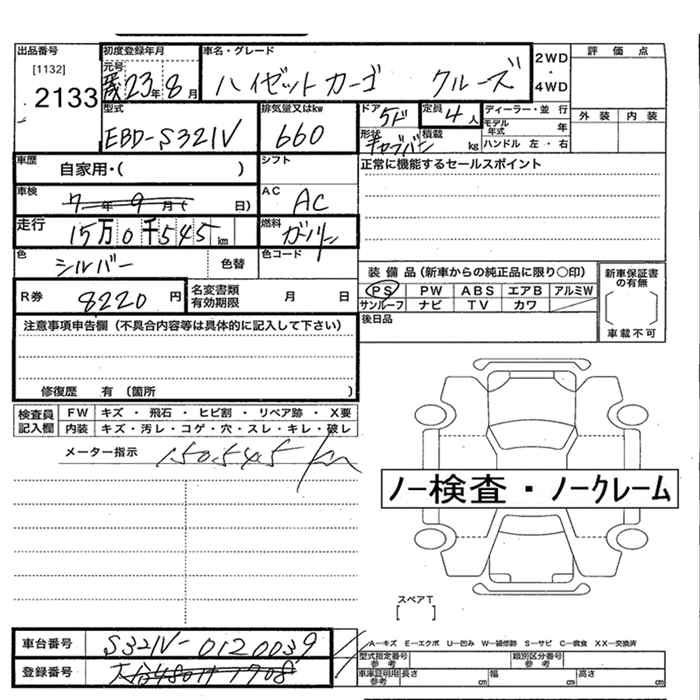 出品番号 初度登録年月 車名・グレード 2WD・4WD 評価点
[1132] 元号
2133 平成23年8月 ハイゼットカーゴ クルーズ
外装 内装
型式 排気量又はkw ドア 5ド 定員 4人 ディーラー・並行
EBD-S321V 660 形状 キャブバン 積載 kg モデル年式 年
ハンドル 左・右
車歴 自家用・( ) シフト 正常に機能するセールスポイント
車検 7年9月( 日) AC AC
走行 15万0千545km 燃料 ガソリン
色 シルバー 色替 色コード
装備品(新車からの純正品に限り○印) 新車保証書の有無
PS PW ABS エアB アルミW
R券 8220円 名変書類有効期限 月 日 サンルーフ ナビ TV カワ
車載不可
注意事項申告欄(不具合内容等は具体的に記入して下さい) 後日品
修復歴 有(箇所 )
検査員記入欄 FW キズ・飛石・ヒビ割・リペア跡・X要
内装 キズ・汚レ・コゲ・穴・スレ・キレ・破レ
メーター指示 150545km
ノー検査・ノークレーム
スペアT
[ ]
車台番号 S321V-0120039
A―キズ E―エクボ U―凹み W―補修跡 S―サビ C―腐食 XX―交換済
登録番号
型式指定番号参考 類別区分番号参考
車庫証明用参考 長さ cm 幅 cm 高さ cm